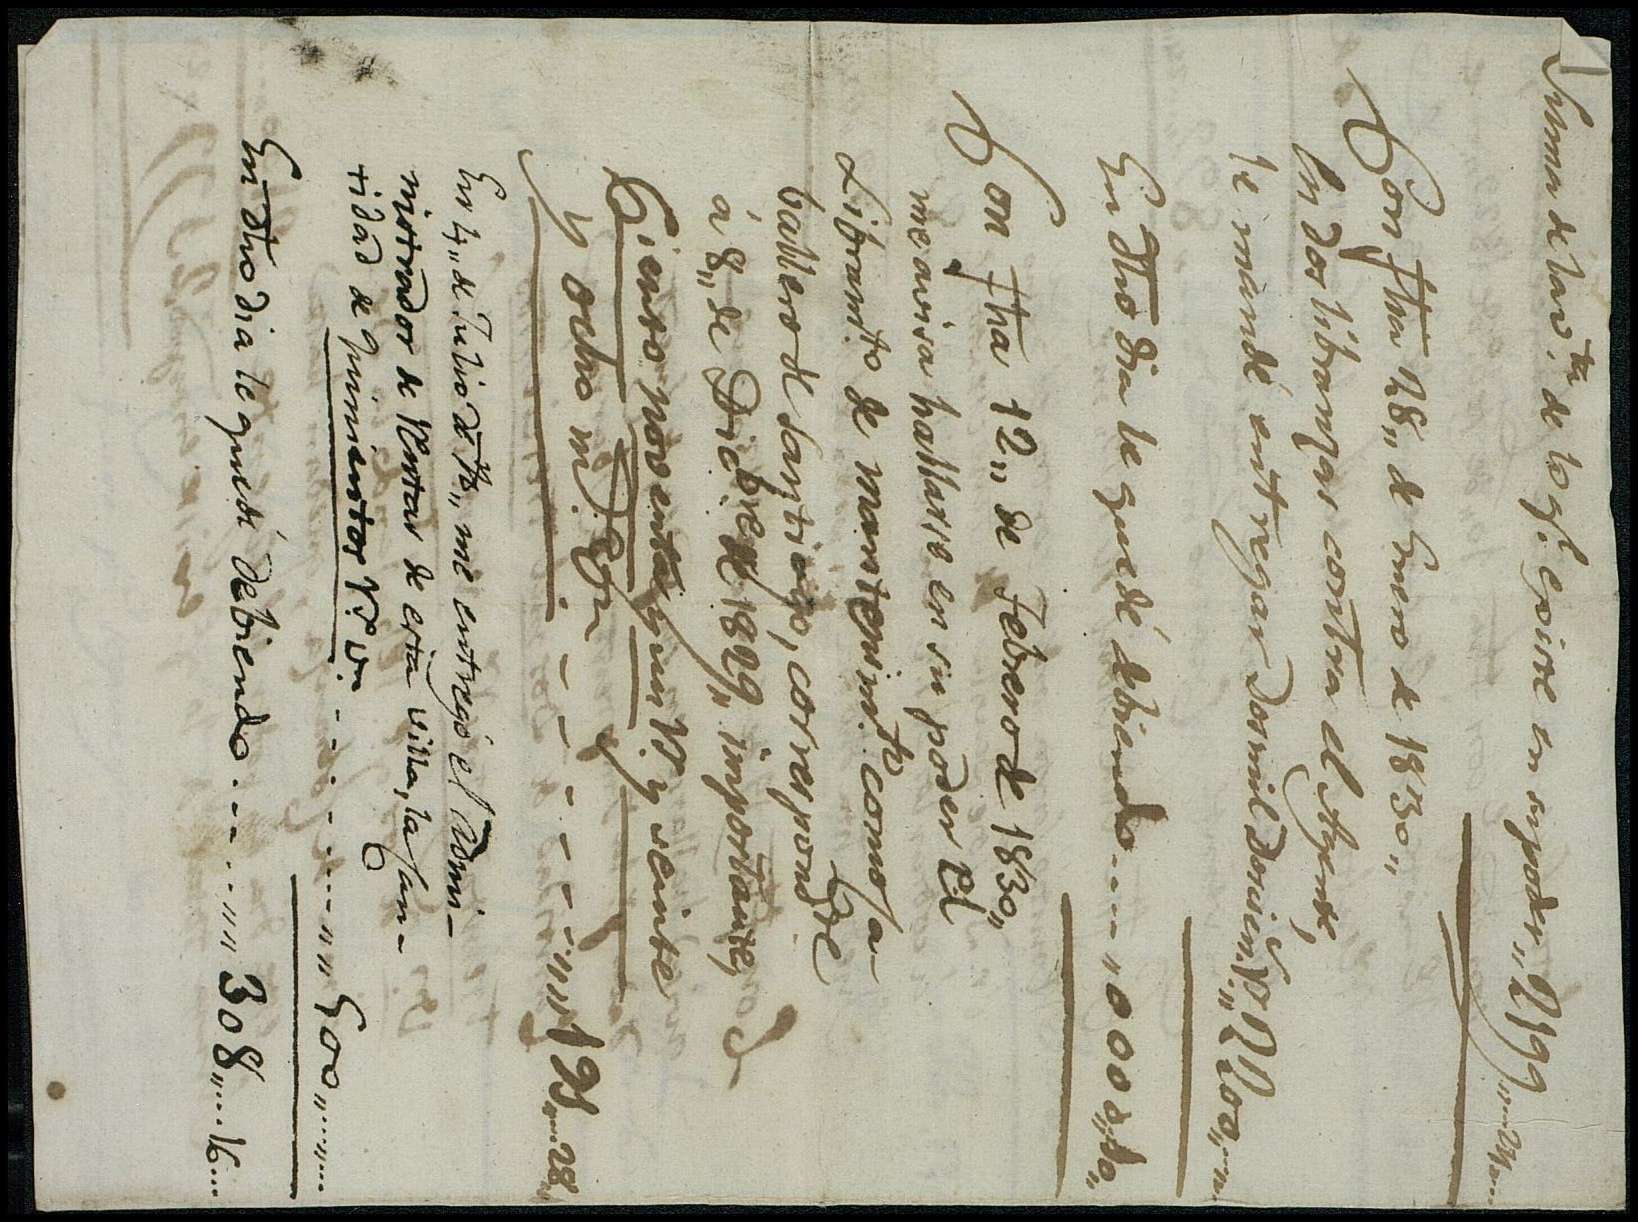 Suma de la v.ta de lo q.e existe en su poder,, 2199,,
Con fha 28,, de Enero de 1830,,
en dos libranzas contra el Agente,
le mandé entregar dos mil doscien.s,, 2200,,
En dho dia le quedé debiendo .. 000,,
Con fha 12,, de Febrero de 1830,,
me avisa hallarse en su poder el
Libram.to de mantenim.to como Ca-
ballero de Santiago, correspond.te
á 8,, de Dicbre de 1829,, importante,
Ciento noventa y un r.s y veinte
y ocho m.s von .. 191,, 28,,
En 4,, de Julio de 30,, me entregó el Admi-
nistrador de Rentas de esta villa, la can-
tidad de quinientos r.s v.n .. 500,,
En dho dia le quedé debiendo .. 308,, .. 6